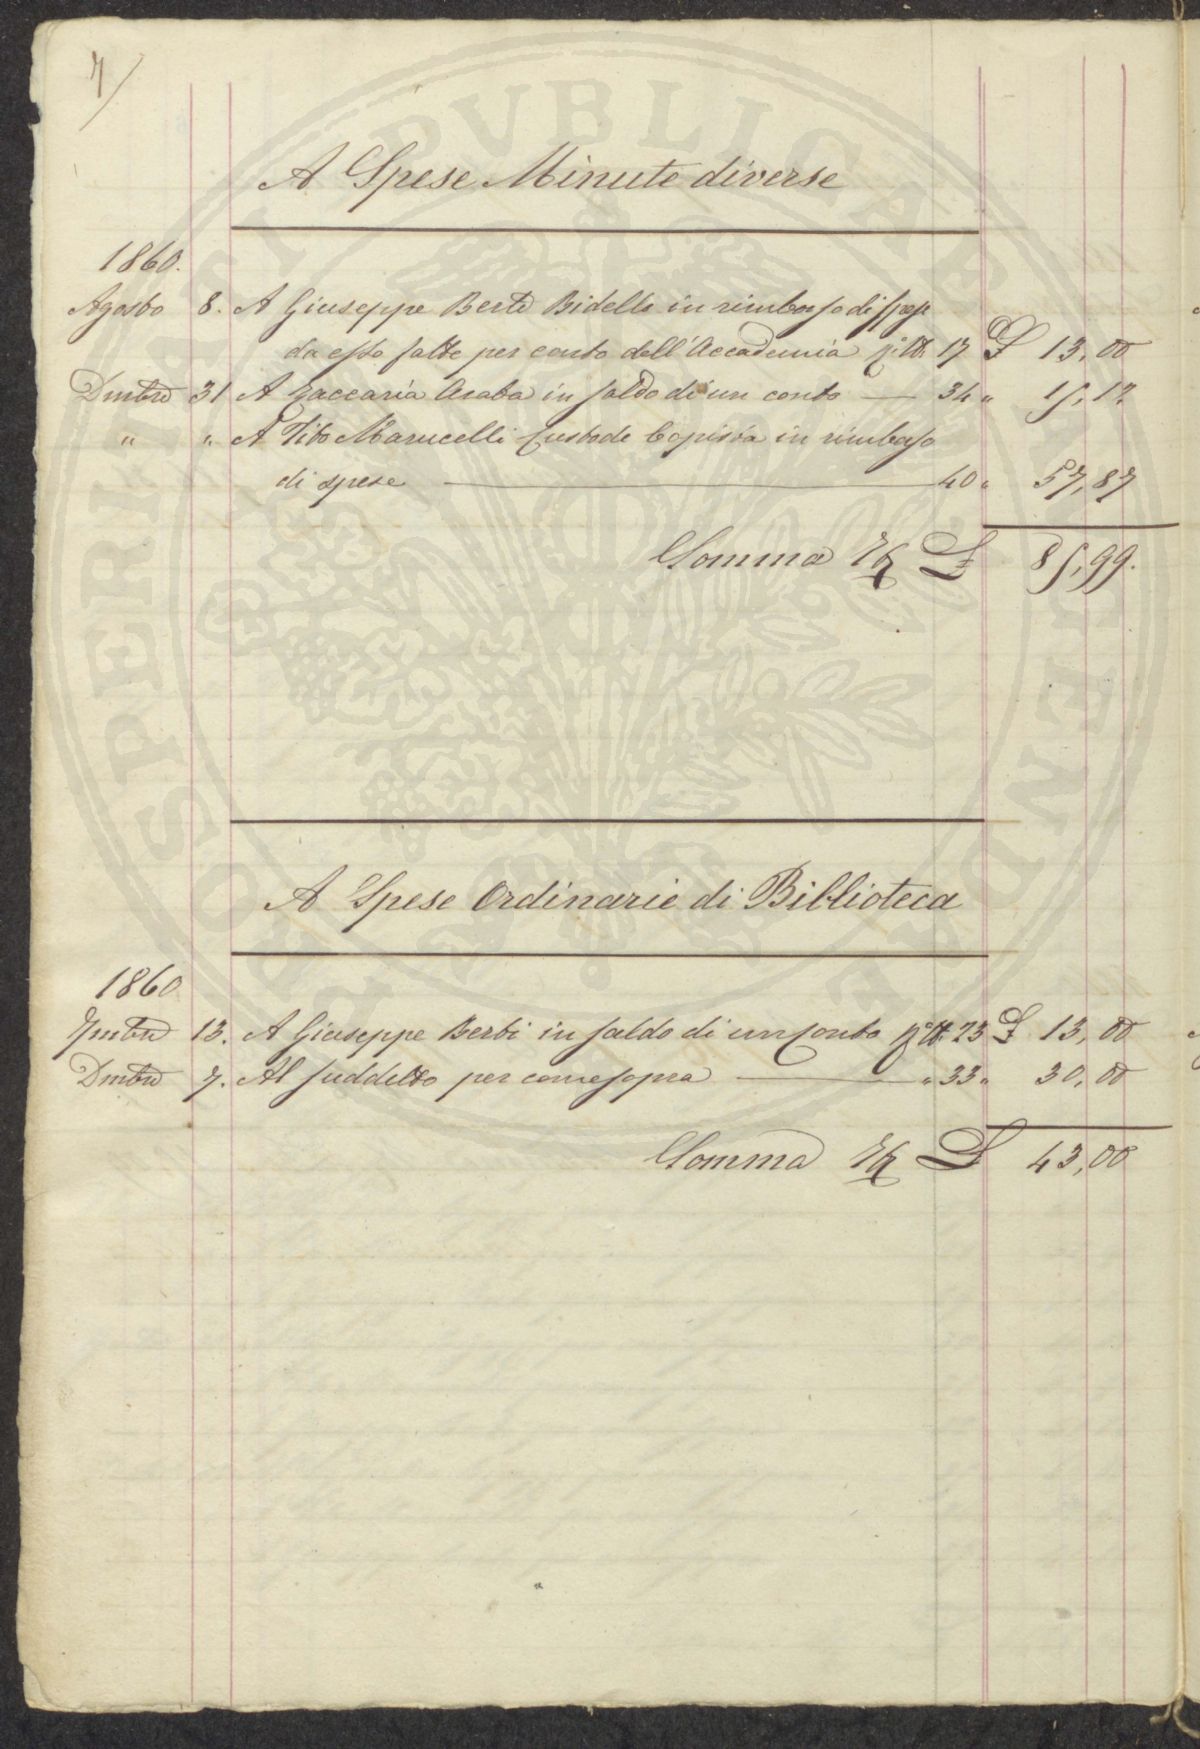 7
A Spese Minute diverse
1860.
Agosto 8. A Giuseppe Berti Bidello in rimborso di spese
da esso fatte per conto dell'Accademia 17 £ 13,00
Dmbre 31 A Zaccaria Araba in saldo di un conto — 34 „ 15,12
„ „ A Tito Marucelli Custode Copista in rimborso
di spese — 40 „ 57,87
Somma £ 85,99.
A Spese Ordinarie di Biblioteca
1860
7mbre 13. A Giuseppe Berti in saldo di un conto 23 £ 13,00
Dmbre 7. Al suddetto per come sopra — „ 33 „ 30,00
Somma £ 43,00
PROSPERITATI PVBLICAE AVGENDAE